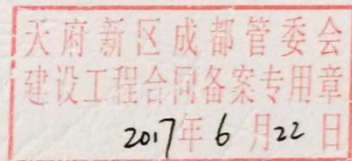 天府新区成都管委会
建设工程合同备案专用章
2017年6月22日